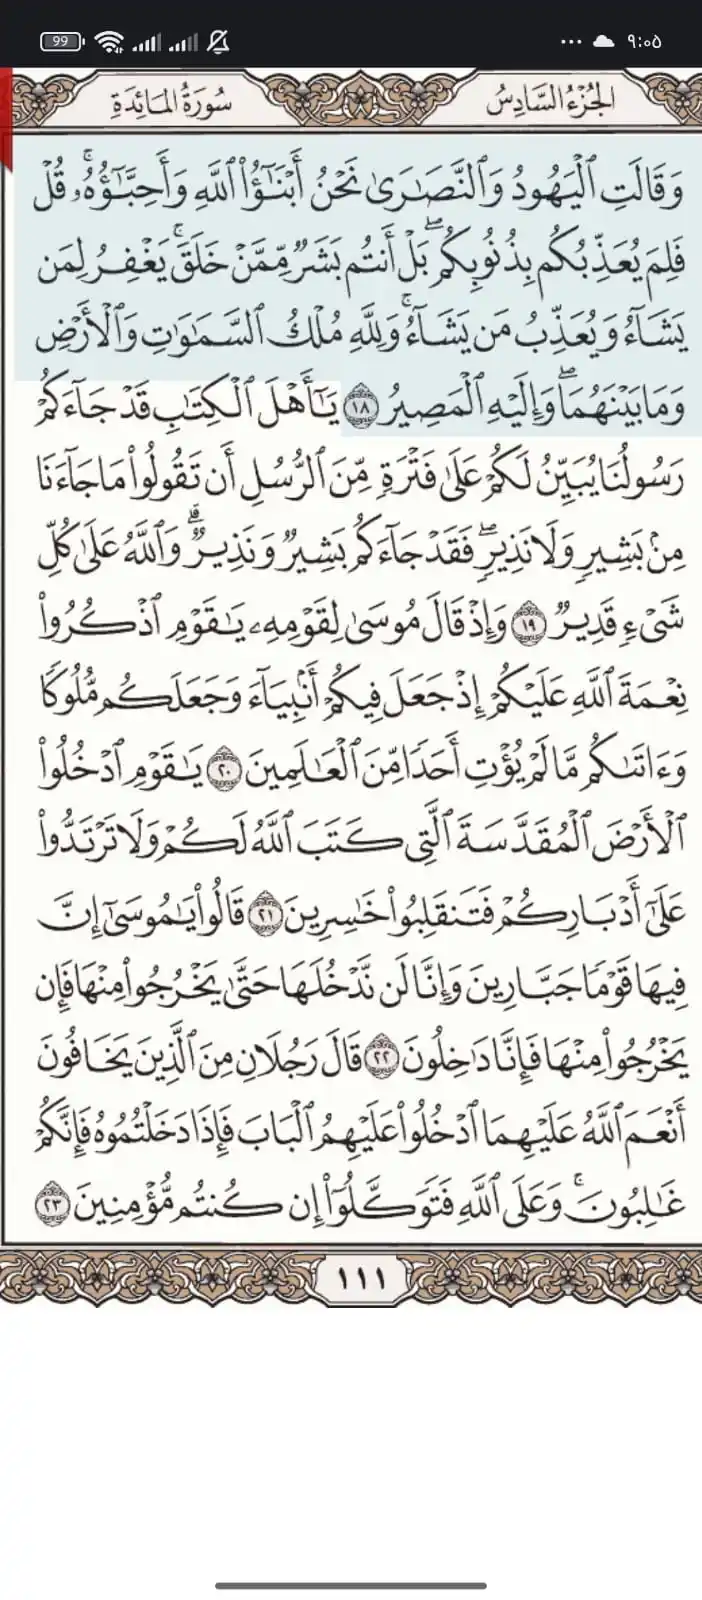 99 ... ٩:٠٥
سُورَةُ المَائدَةِ الجُزْءُ السَّادِسُ
وَقَالَتِ ٱلۡيَهُودُ وَٱلنَّصَٰرَىٰ نَحۡنُ أَبۡنَٰٓؤُاْ ٱللَّهِ وَأَحِبَّٰٓؤُهُۥۚ قُلۡ
فَلِمَ يُعَذِّبُكُم بِذُنُوبِكُمۖ بَلۡ أَنتُم بَشَرٞ مِّمَّنۡ خَلَقَۚ يَغۡفِرُ لِمَن
يَشَآءُ وَيُعَذِّبُ مَن يَشَآءُۚ وَلِلَّهِ مُلۡكُ ٱلسَّمَٰوَٰتِ وَٱلۡأَرۡضِ
وَمَا بَيۡنَهُمَاۖ وَإِلَيۡهِ ٱلۡمَصِيرُ ١٨ يَٰٓأَهۡلَ ٱلۡكِتَٰبِ قَدۡ جَآءَكُمۡ
رَسُولُنَا يُبَيِّنُ لَكُمۡ عَلَىٰ فَتۡرَةٖ مِّنَ ٱلرُّسُلِ أَن تَقُولُواْ مَا جَآءَنَا
مِنۢ بَشِيرٖ وَلَا نَذِيرٖۖ فَقَدۡ جَآءَكُم بَشِيرٞ وَنَذِيرٞۗ وَٱللَّهُ عَلَىٰ كُلِّ
شَيۡءٖ قَدِيرٞ ١٩ وَإِذۡ قَالَ مُوسَىٰ لِقَوۡمِهِۦ يَٰقَوۡمِ ٱذۡكُرُواْ
نِعۡمَةَ ٱللَّهِ عَلَيۡكُمۡ إِذۡ جَعَلَ فِيكُمۡ أَنۢبِيَآءَ وَجَعَلَكُم مُّلُوكٗا
وَءَاتَىٰكُم مَّا لَمۡ يُؤۡتِ أَحَدٗا مِّنَ ٱلۡعَٰلَمِينَ ٢٠ يَٰقَوۡمِ ٱدۡخُلُواْ
ٱلۡأَرۡضَ ٱلۡمُقَدَّسَةَ ٱلَّتِي كَتَبَ ٱللَّهُ لَكُمۡ وَلَا تَرۡتَدُّواْ
عَلَىٰٓ أَدۡبَارِكُمۡ فَتَنقَلِبُواْ خَٰسِرِينَ ٢١ قَالُواْ يَٰمُوسَىٰٓ إِنَّ
فِيهَا قَوۡمٗا جَبَّارِينَ وَإِنَّا لَن نَّدۡخُلَهَا حَتَّىٰ يَخۡرُجُواْ مِنۡهَا فَإِن
يَخۡرُجُواْ مِنۡهَا فَإِنَّا دَٰخِلُونَ ٢٢ قَالَ رَجُلَانِ مِنَ ٱلَّذِينَ يَخَافُونَ
أَنۡعَمَ ٱللَّهُ عَلَيۡهِمَا ٱدۡخُلُواْ عَلَيۡهِمُ ٱلۡبَابَ فَإِذَا دَخَلۡتُمُوهُ فَإِنَّكُمۡ
غَٰلِبُونَۚ وَعَلَى ٱللَّهِ فَتَوَكَّلُوٓاْ إِن كُنتُم مُّؤۡمِنِينَ ٢٣
١١١